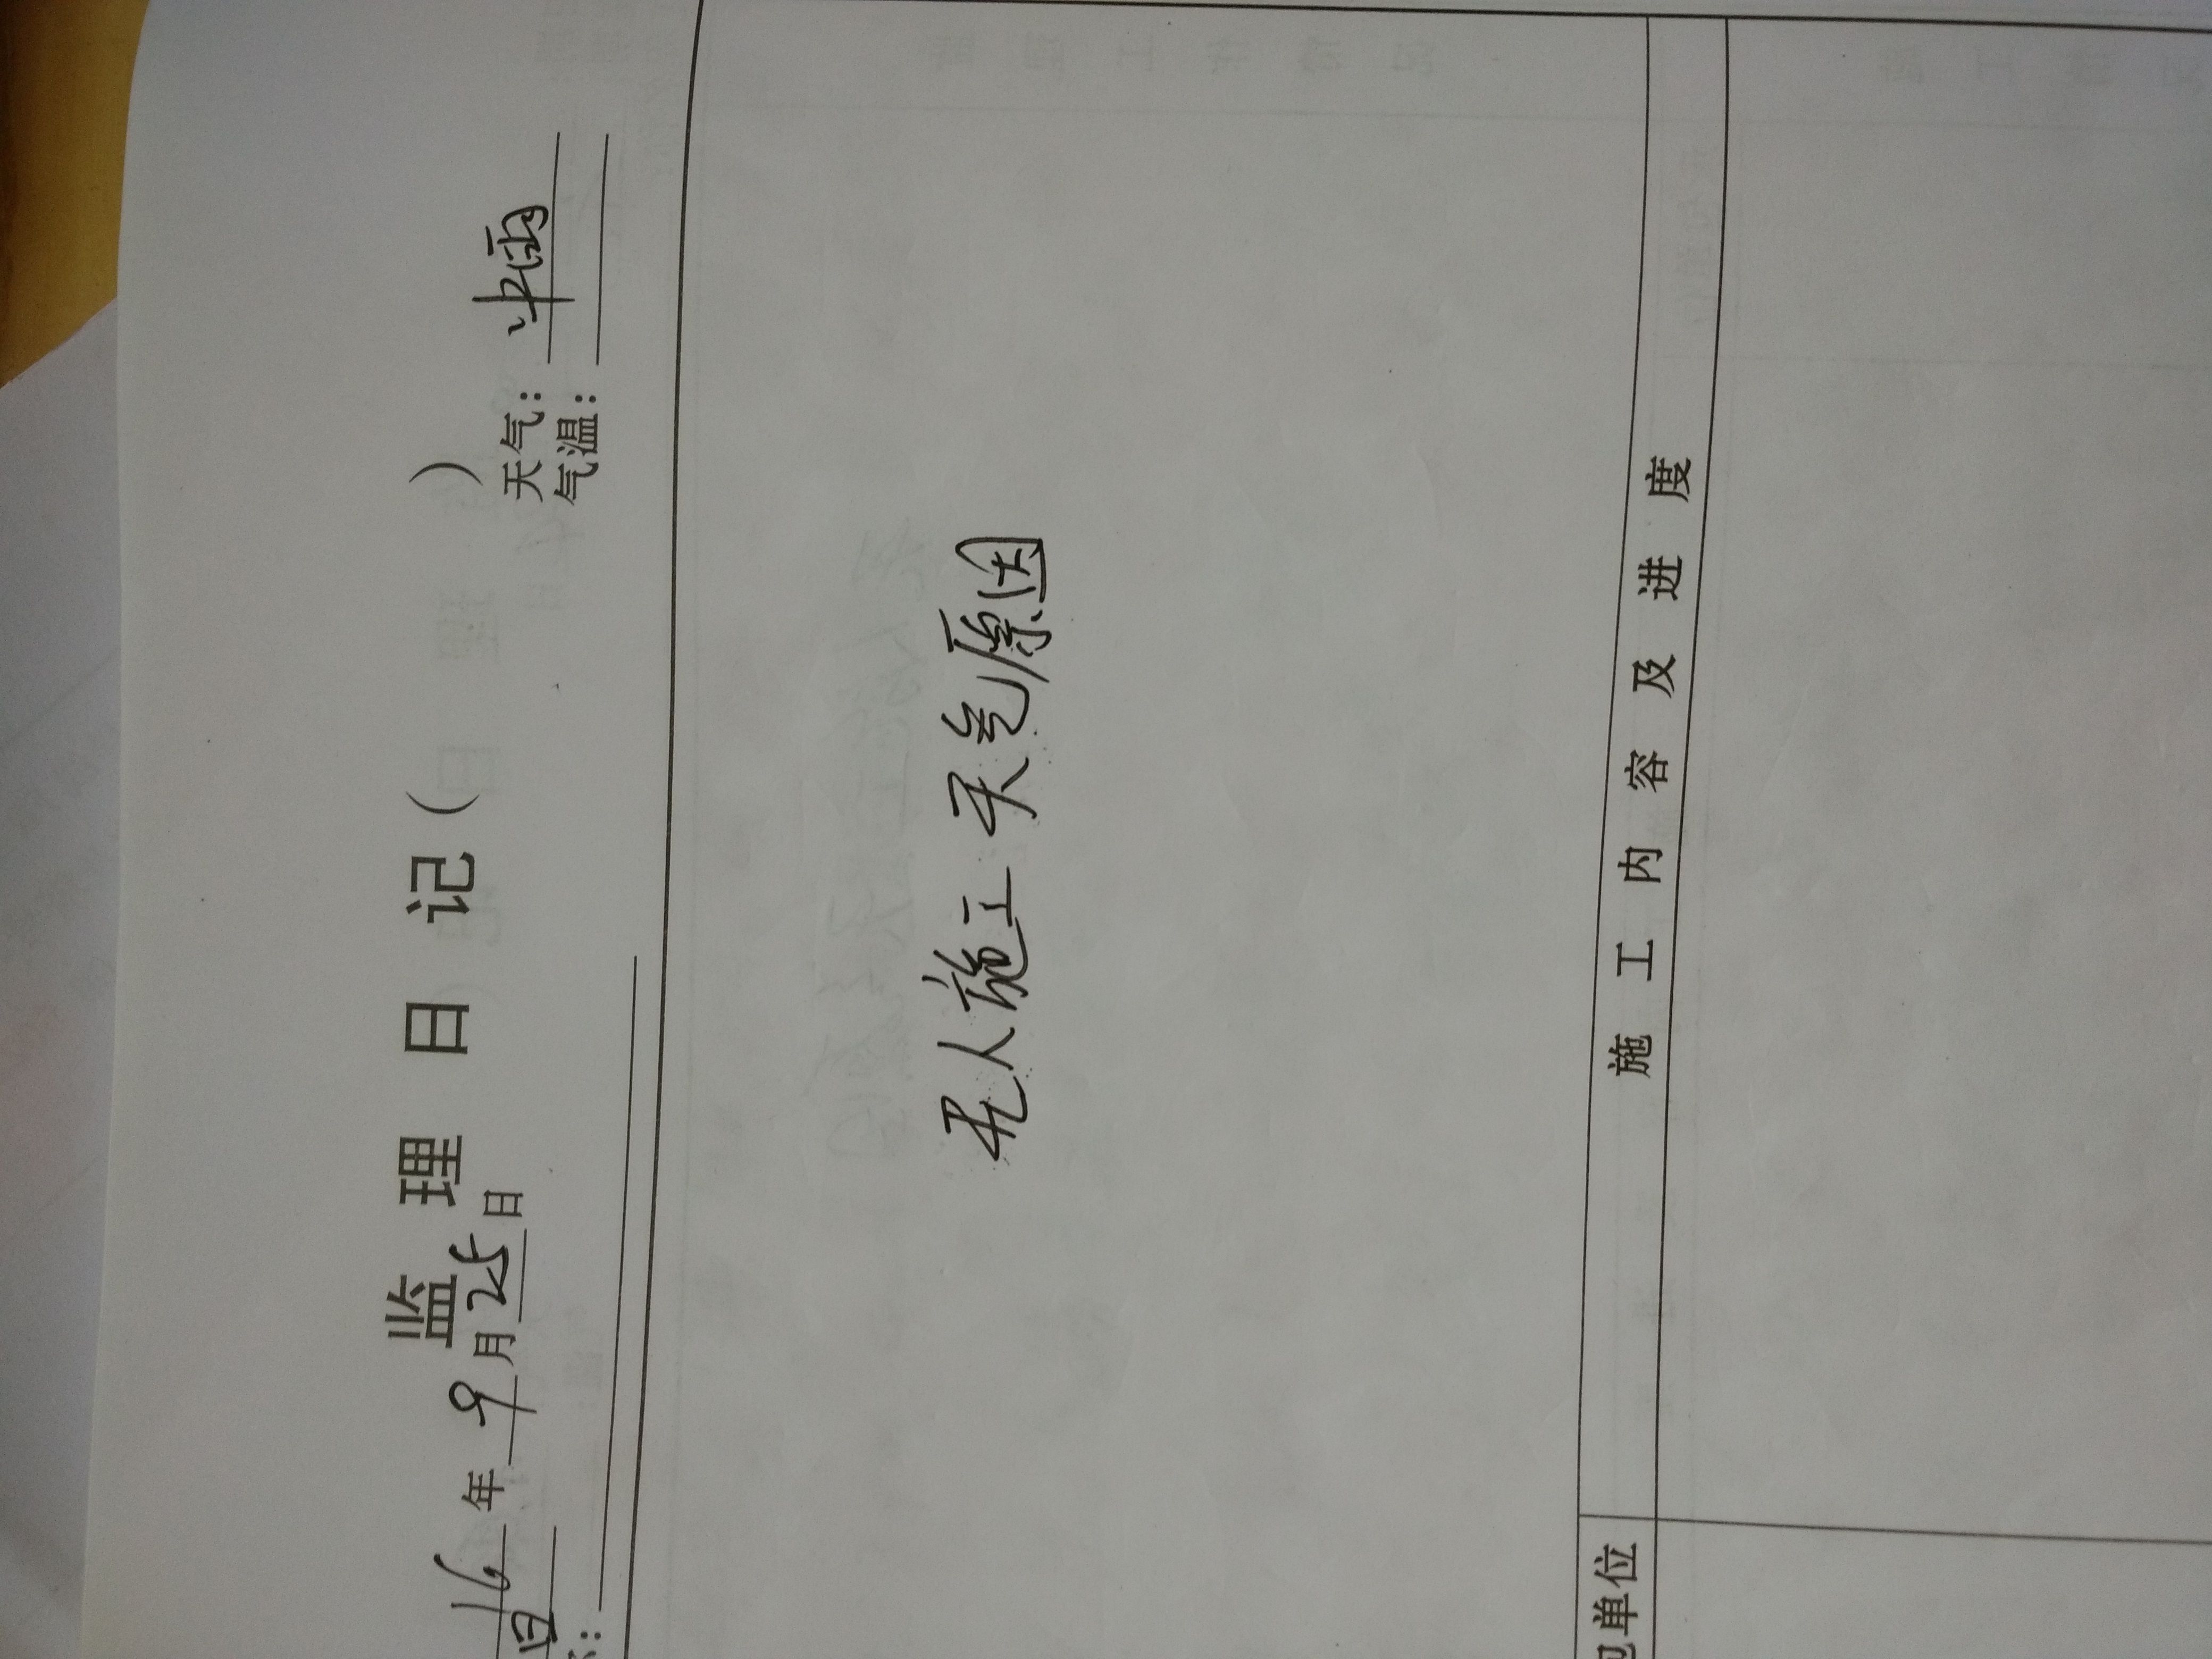 监理日记（ ）
16年9月25日 天气：小雨
日 气温：
无人施工 天气原因
单位 施工内容及进度